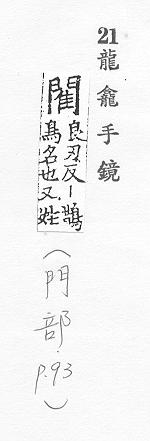 21龍龕手鏡
閵良刃反丨鵲
鳥名也又姓
(門部.p.93)